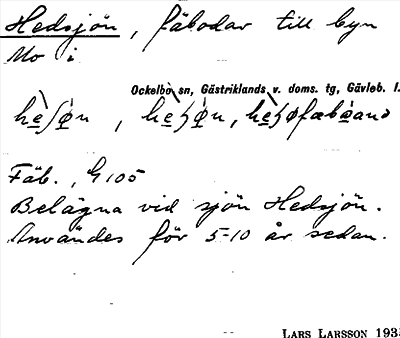 Hedsjön, fäbodar till byn
Mo i
Ockelbo sn, Gästriklands v. doms. tg, Gävleb. l.
Fäb., G 105
Belägna vid sjön Hedsjön.
Användes för 5-10 år sedan.
LARS LARSSON 1935